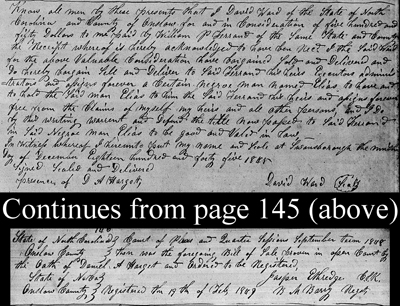 Know all men by these presents that I David Ward of the State of North
Carolina and County of Onslow for and in Consideration of five hundred and
fifty Dollars to me paid by William P Ferrand of the Same State and County
the Receipt whereof is hereby acknowledged to have been Rect I the Said Ward
for the above Valuable Consideration have bargained Sold and Delivered and
do hereby bargain Sell and Deliver to Said Ferrand his heirs Executors administ
and assigns forever a Certain Negroe man Named Elias to have and
to hold the Said man Elias to him the Said Ferrand his heirs and assigns forever
free from the Claims of myself my heirs and all other persons, and I do
by this writing warrent and defend the title Now passed to Said Ferrand
in Said Negroe man Elias to be good and Valid in Law,
In witness whereof I hereunto Set my name and Seal at Swansborough the
day of December Eighteen hundred and forty five 1845
Signed Sealed and Delivered
presence of D A Hargett David Ward {Seal}
Continues from page 145 (above)
146
State of North Carolina } Court of Pleas and Quarter Sessions September term 1848
Onslow County } then was the foregoing Bill of Sale proven in open Court by
the Oath of Daniel A Harget and Ordred to be Registered
State of No Ca } Jasper Etheredge Clk
Onslow County } Registered the 19th of Feb 1849